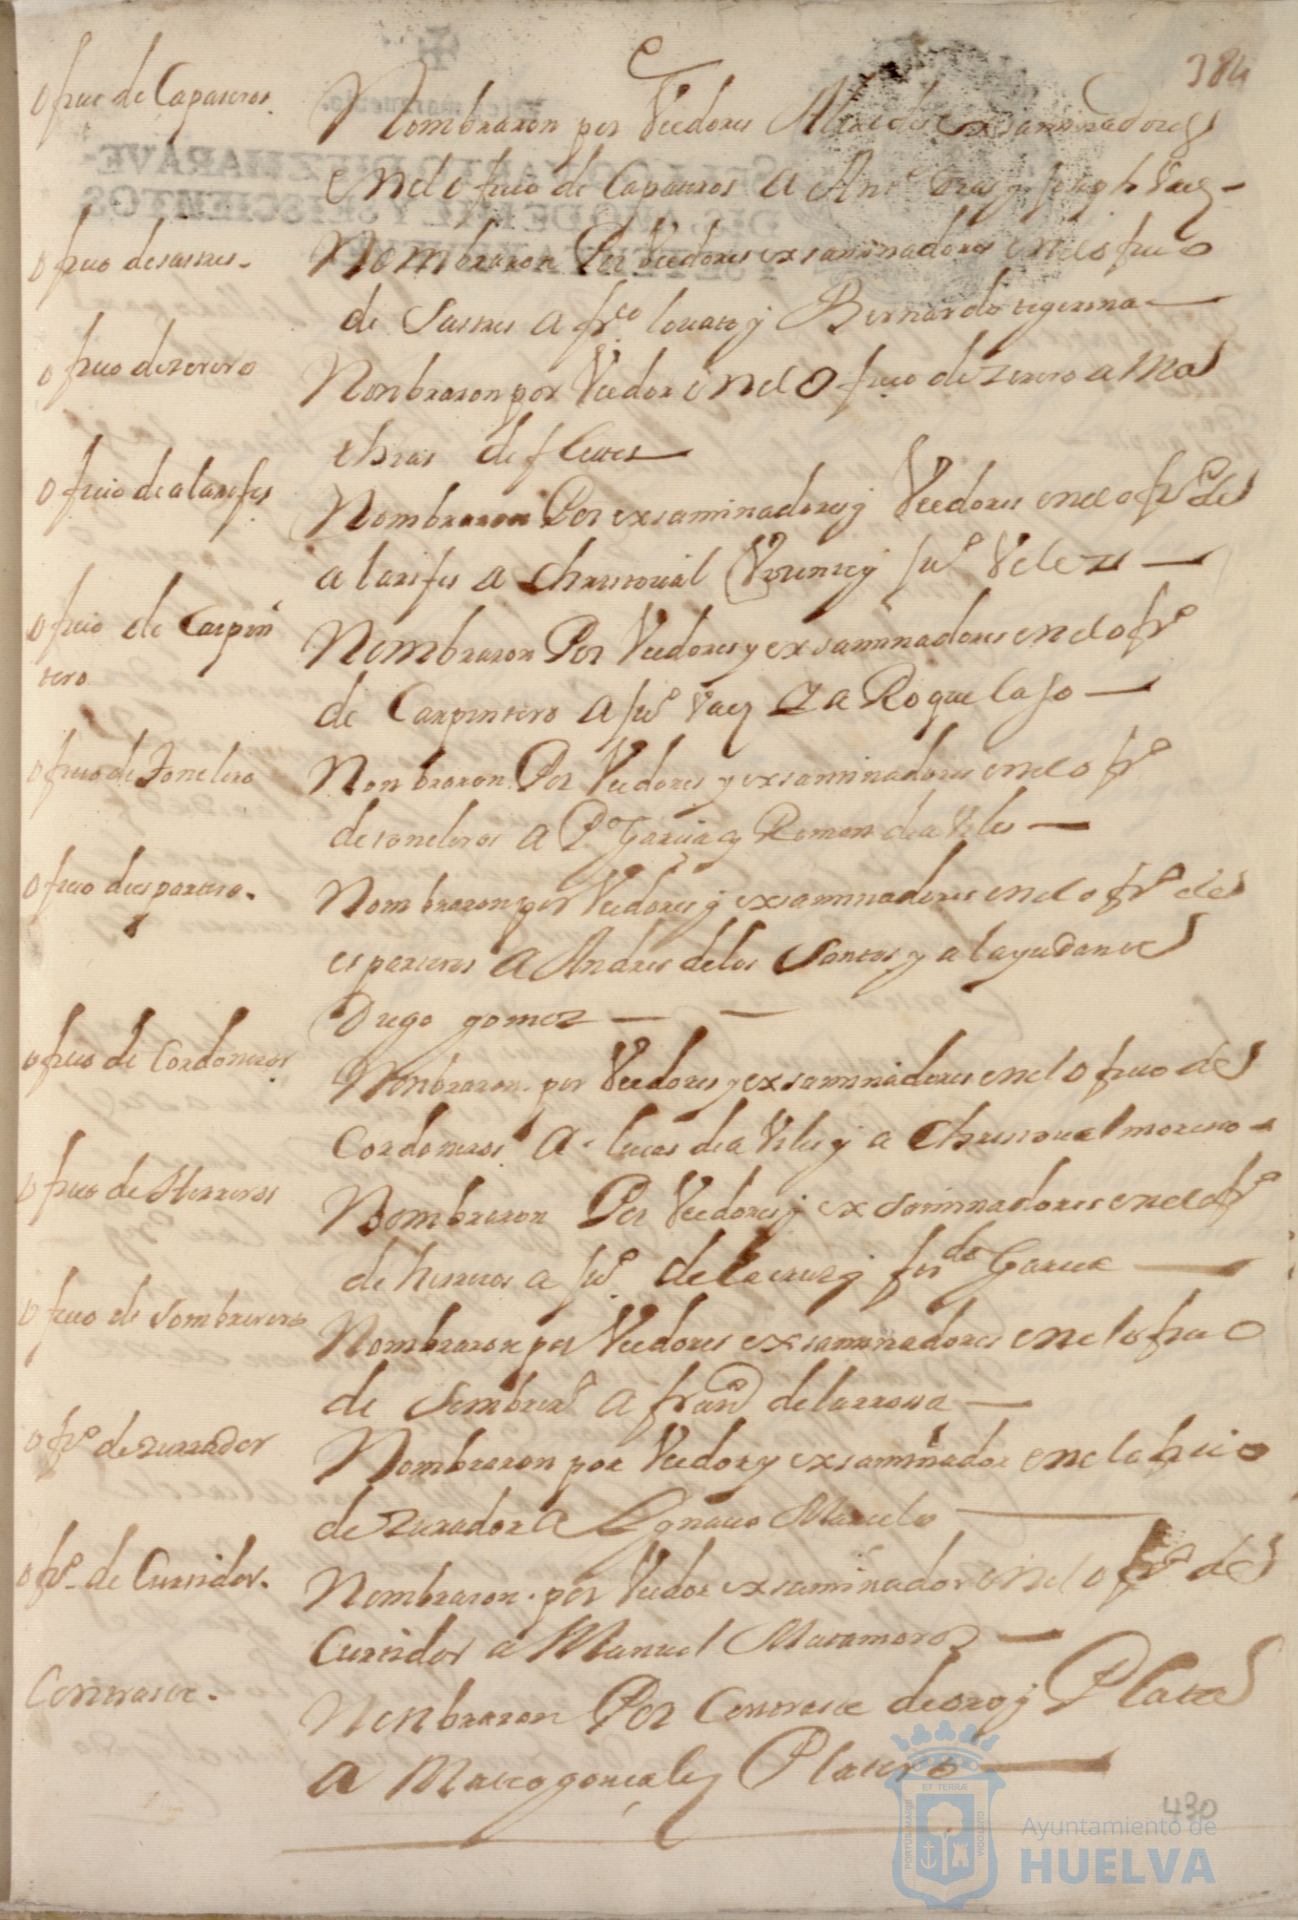 384
ofiçio de Capateros
Nombraron por Veedores Alcaldes exsaminadores
en el ofiçio de Capateros a Antº y Joseph Vaez
ofiçio de sastres
Nombraron Por Veedores exsaminadores en el ofiçio
de Sastres a frco lovato y Bernardo tegerina
ofiçio de zerero
Nonbraron por Veedor en el Ofiçio de zerero a Ma
thias de fleites
ofiçio de alarifes
Nombraron Por exsaminadores y Veedores en el ofiº de
alarifes a Christoual Vorente y Juº Velez
ofiçio de Carpin
tero
Nombraron Por Veedores y exsaminadores en el ofiº
de Carpintero a Juº Vaez y a Roque laso
ofiçio de Tonelero
Nonbraron Por Veedores y exsaminadores en el ofiº
de toneleros a Pº Garcia y Roman de aviles
ofiçio de espartero
Nombraron por Veedores y exsaminadores en el ofiº de
esparteros a Andres de los Santos y al ayudante
Diego gomez
ofiçio de Cordoneros
Nonbraron por Veedores y exsaminadores en el ofiçio de
Cordoneros a lucas de aviles y a Christoual moreno
ofiçio de Herreros
Nombraron Por Veedores y exsaminadores en el ofiº
de herreros a Juº de la cruz y ferdo Garcia
ofiçio de sombrerero
Nombraron por Veedores exsaminadores en el ofiçio
de Sombrerº a franco de la rrosa
ofiº de zurrador
Nombraron por Veedor y exsaminador en el ofiçio
de zurador a Ygnaçio Marcelo
ofiº de Curtidor
Nombraron por Veedor exsaminador en el ofiº de
Curtidor a Manuel Matamoros
Contraste
Nonbraron Por Contraste de oro y Plata
a Mateo gonçalez Platero
430
PORTUM MARIS ET TERRÆ CUSTODIA
Ayuntamiento de
HUELVA